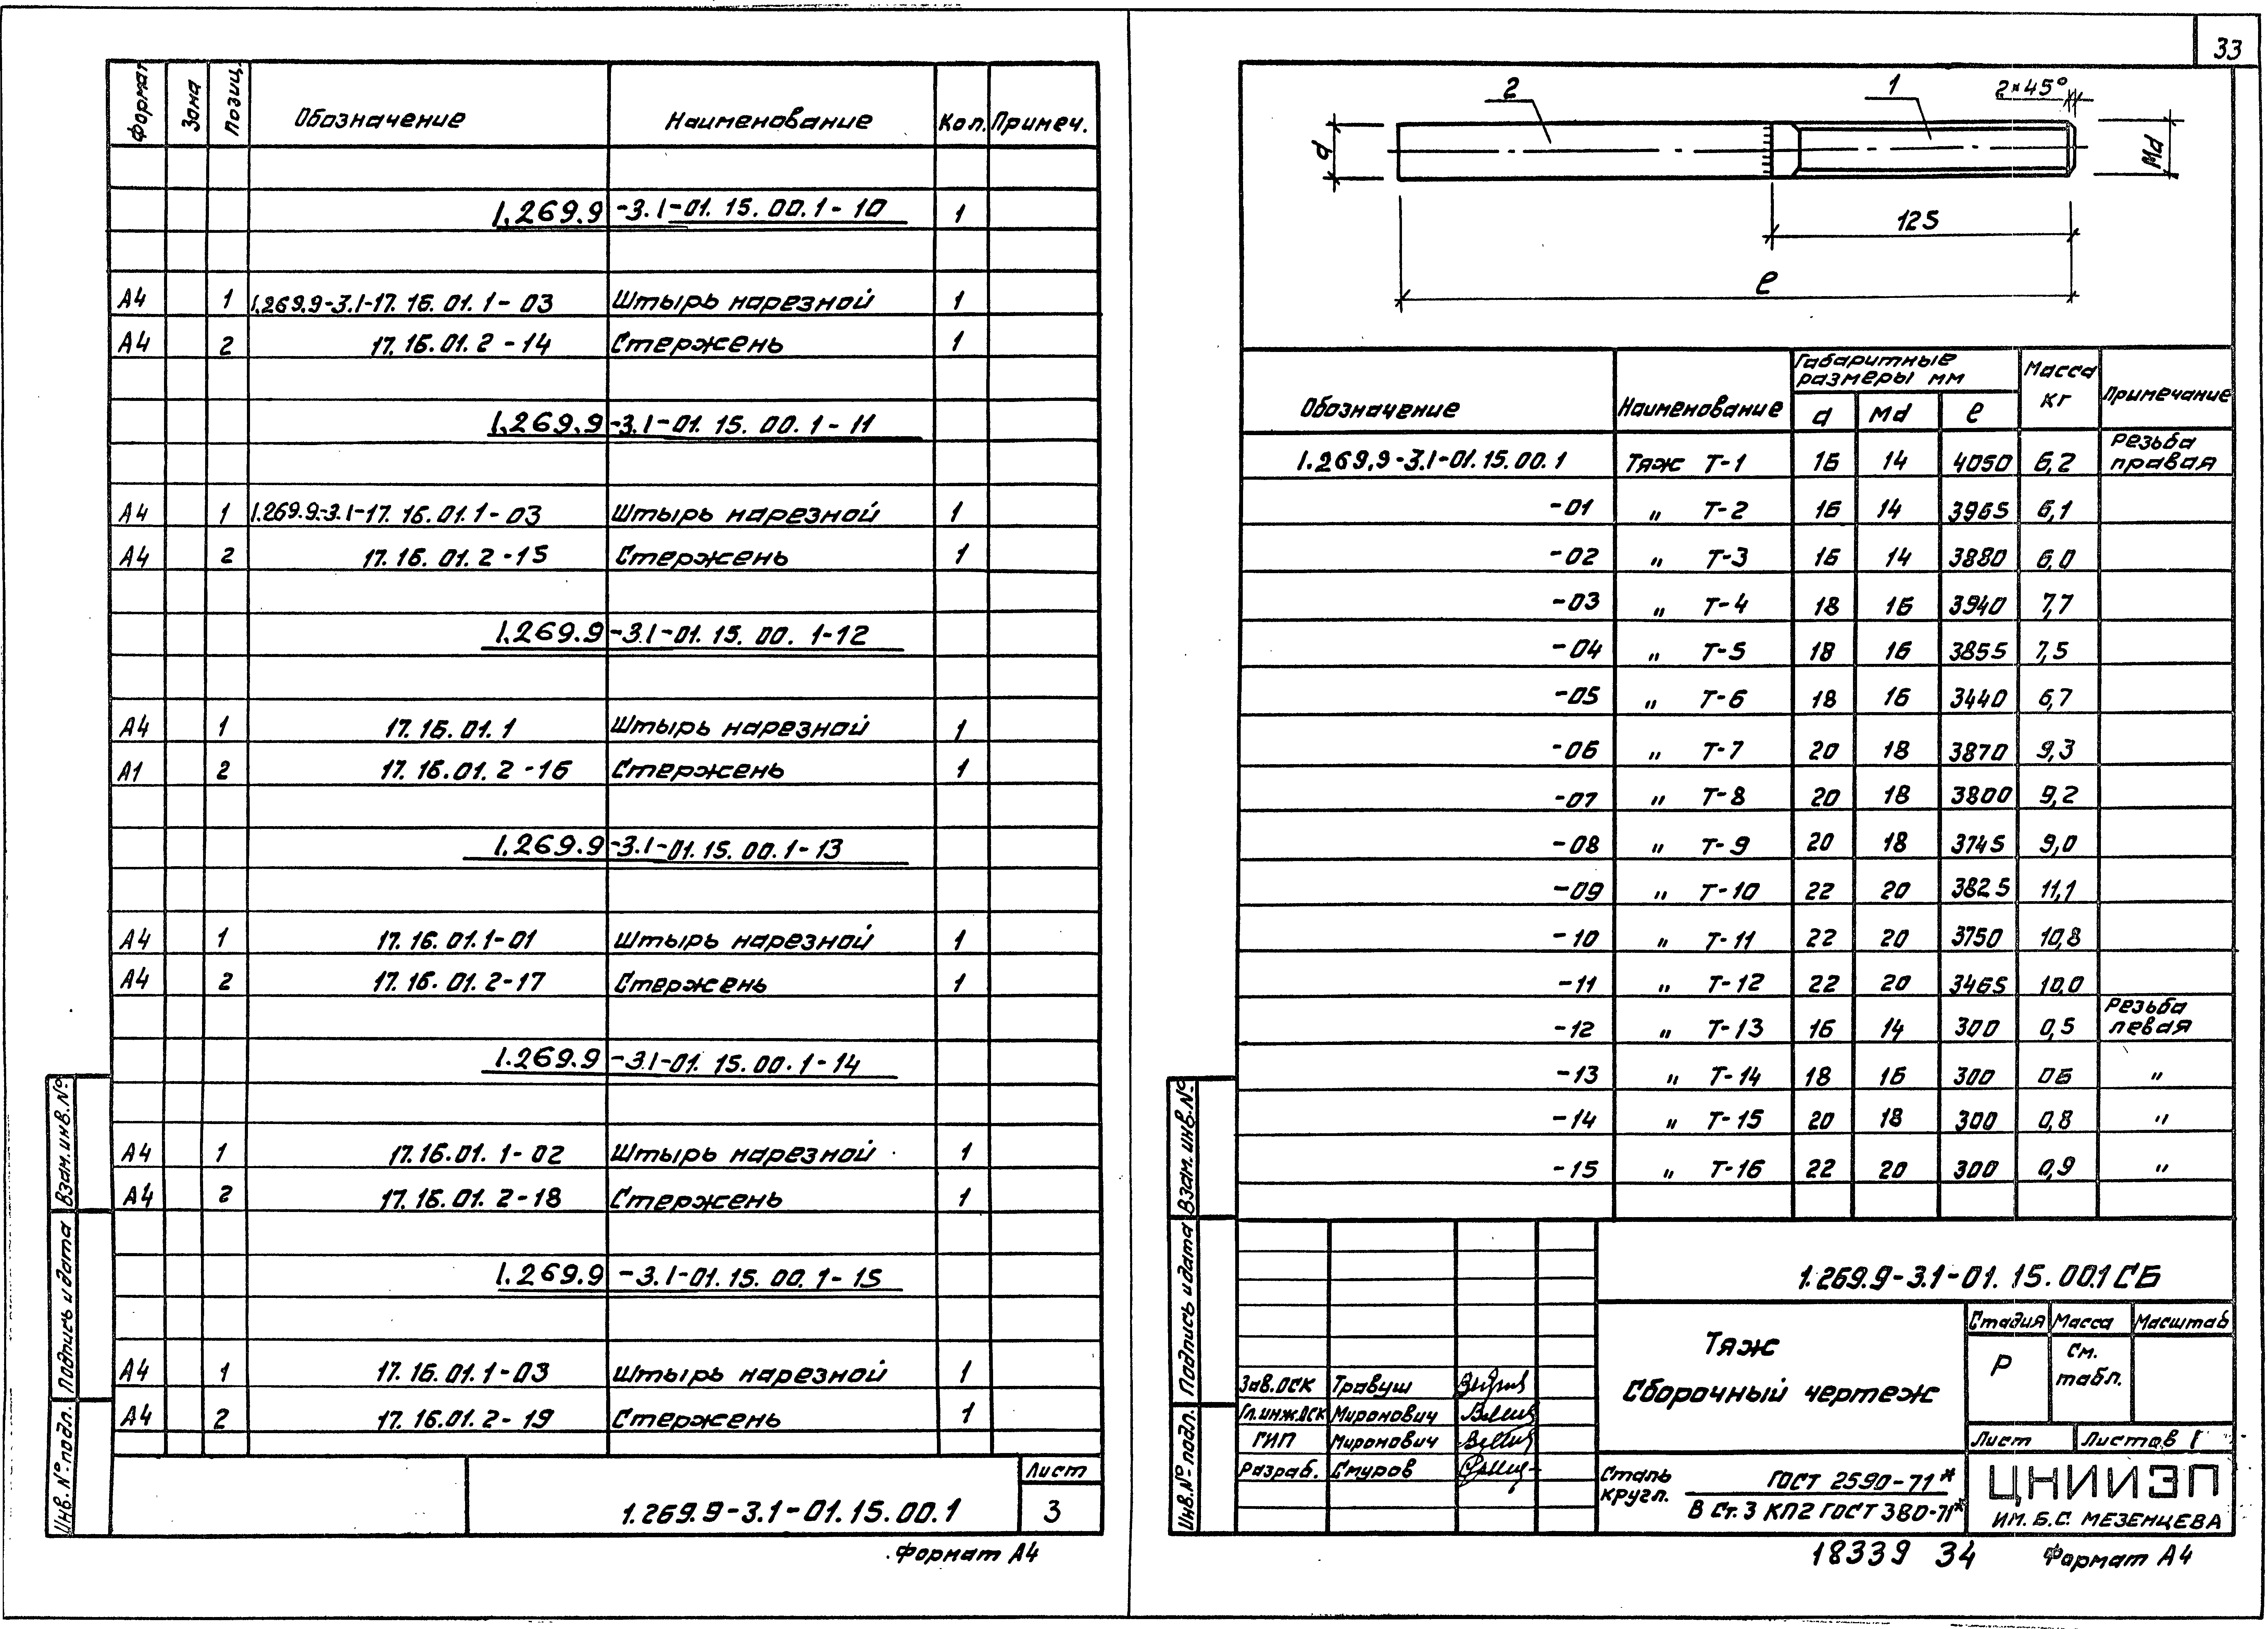 Формат Зона Позиц. Обозначение Наименование Кол. Примеч.
1.269.9-3.1-01.15.00.1-10 1
А4 1 1.269.9-3.1-17.16.01.1-03 Штырь нарезной 1
А4 2 17.16.01.2-14 Стержень 1
1.269.9-3.1-01.15.00.1-11
А4 1 1.269.9-3.1-17.16.01.1-03 Штырь нарезной 1
А4 2 17.16.01.2-15 Стержень 1
1.269.9-3.1-01.15.00.1-12
А4 1 17.16.01.1 Штырь нарезной 1
А1 2 17.16.01.2-16 Стержень 1
1.269.9-3.1-01.15.00.1-13
А4 1 17.16.01.1-01 Штырь нарезной 1
А4 2 17.16.01.2-17 Стержень 1
1.269.9-3.1-01.15.00.1-14
А4 1 17.16.01.1-02 Штырь нарезной 1
А4 2 17.16.01.2-18 Стержень 1
1.269.9-3.1-01.15.00.1-15
А4 1 17.16.01.1-03 Штырь нарезной 1
А4 2 17.16.01.2-19 Стержень 1
Инв.№подл. Подпись и дата Взам.инв.№
1.269.9-3.1-01.15.00.1
Лист
3
Формат А4
33
2 1 2×45°
d Md
125
ℓ
Обозначение Наименование Габаритные размеры мм Масса кг Примечание
d Md ℓ
1.269.9-3.1-01.15.00.1 Тяж Т-1 16 14 4050 6,2 Резьба правая
-01 " Т-2 16 14 3965 6,1
-02 " Т-3 16 14 3880 6,0
-03 " Т-4 18 16 3940 7,7
-04 " Т-5 18 16 3855 7,5
-05 " Т-6 18 16 3440 6,7
-06 " Т-7 20 18 3870 9,3
-07 " Т-8 20 18 3800 9,2
-08 " Т-9 20 18 3745 9,0
-09 " Т-10 22 20 3825 11,1
-10 " Т-11 22 20 3750 10,8
-11 " Т-12 22 20 3465 10,0
-12 " Т-13 16 14 300 0,5 Резьба левая
-13 " Т-14 18 16 300 06 "
-14 " Т-15 20 18 300 0,8 "
-15 " Т-16 22 20 300 0,9 "
Инв.№подл. Подпись и дата Взам.инв.№
1.269.9-3.1-01.15.00.1 СБ
Тяж
Сборочный чертеж
Стадия Масса Масштаб
Р См. табл.
Лист Листов 1
Зав.ОСК Травуш
Гл.инж.ОСК Миронович
ГИП Миронович
Разраб. Смуров
Сталь кругл. ГОСТ 2590-71*
В Ст.3 КП2 ГОСТ 380-71*
ЦНИИЭП
ИМ. Б.С. МЕЗЕНЦЕВА
18339 34
Формат А4